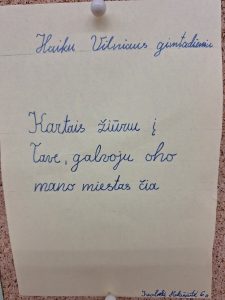 Haiku Vilniaus gimtadieniui
Kartais žiūriu į
Tave, galvoju oho
mano miestas čia